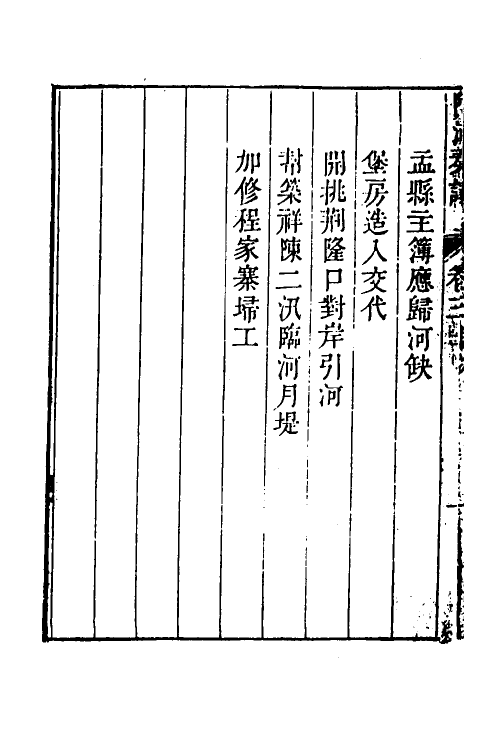 孟縣主簿應歸河缺
堡房造入交代
開挑荆隆口對岸引河
幇築祥陳二汛臨河月堤
加修程家寨埽工
卷三